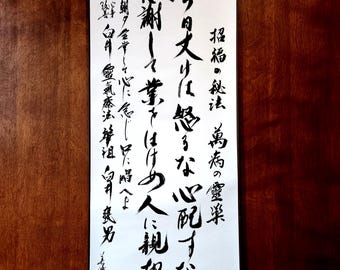 招福の秘法 萬病の靈薬
今日丈けは 怒るな 心配すな
感謝して 業をはけめ 人に親切
朝夕合掌して心に念じ口に唱へよ
臼井靈氣療法 肇祖 臼井甕男